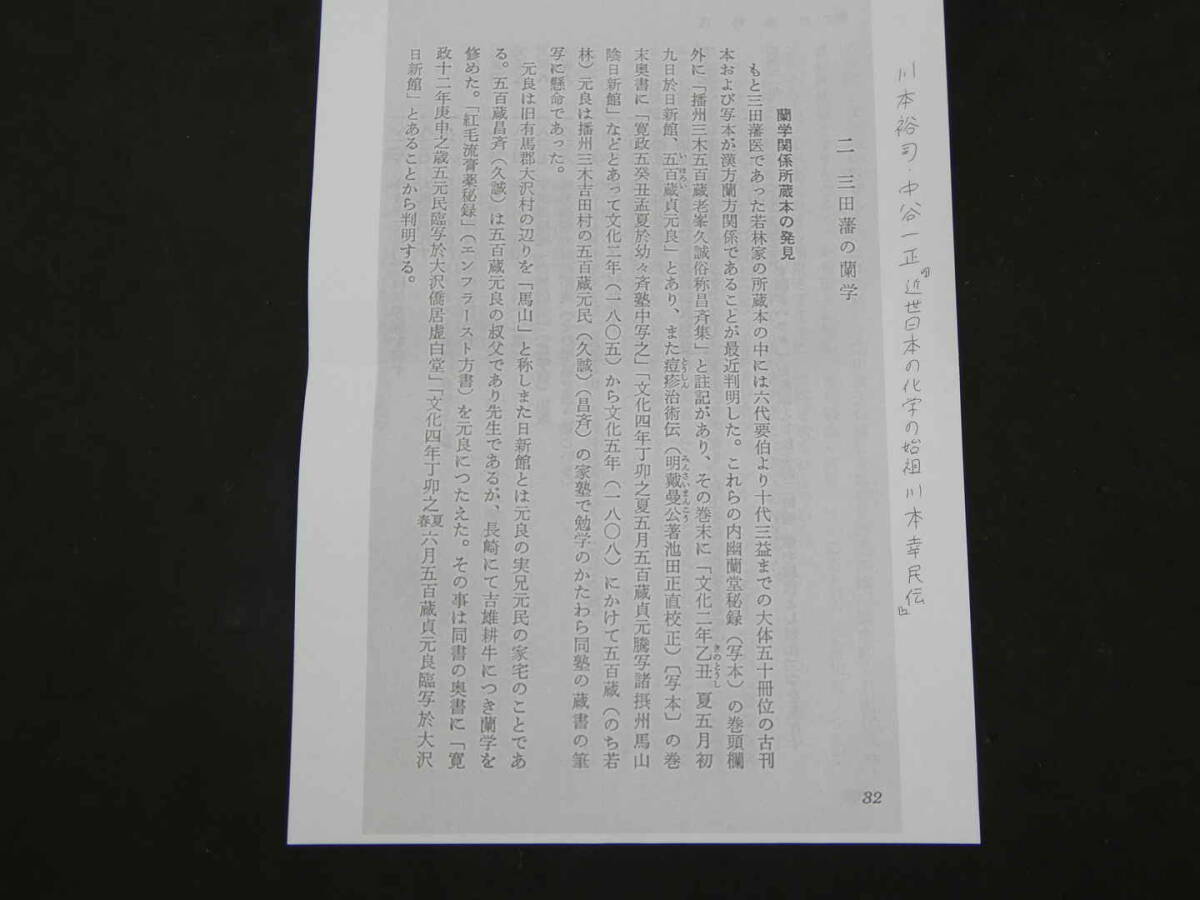 川本裕司・中谷一正『近世日本の化学の始祖 川本幸民伝』
二 三田藩の蘭学
蘭学関係所蔵本の発見
もと三田藩医であった若林家の所蔵本の中には六代要伯より十代三益までの大体五十冊位の古刊
本および写本が漢方蘭方関係であることが最近判明した。これらの内幽蘭堂秘録（写本）の巻頭欄
外に「播州三木五百蔵老峯久誠俗称昌斉集」と註記があり、その巻末に「文化二年乙丑きのとうし夏五月初
九日於日新館、五百蔵いほろい貞元良」とあり、また痘疹とうしん治術伝（明戴曼公みんさいまんこう著池田正直校正）〔写本〕の巻
末奥書に「寛政五癸丑孟夏於幼々斉塾中写之」「文化四年丁卯之夏五月五百蔵貞元騰写諸摂州馬山
陰日新館」などとあって文化二年（一八〇五）から文化五年（一八〇八）にかけて五百蔵（のち若
林）元良は播州三木吉田村の五百蔵元民（久誠）（昌斉）の家塾で勉学のかたわら同塾の蔵書の筆
写に懸命であった。
元良は旧有馬郡大沢村の辺りを「馬山」と称しまた日新館とは元良の実兄元民の家宅のことであ
る。五百蔵昌斉（久誠）は五百蔵元良の叔父であり先生であるが、長崎にて吉雄耕牛につき蘭学を
修めた。「紅毛流膏薬秘録」（エンフラースト方書）を元良につたえた。その事は同書の奥書に「寛
政十二年庚申之歳五元民臨写於大沢僑居虚白堂」「文化四年丁卯之春夏六月五百蔵貞元良臨写於大沢
日新館」とあることから判明する。
32